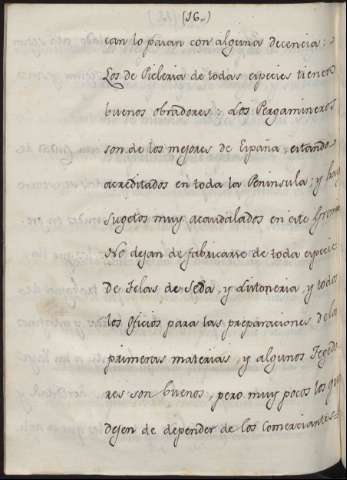 (56..)
can lo pasan con alguna decencia:
Los de Peleria de todas especies tienen
buenos obradores; Los Pergamineros
son de los mejores de España, estando
acreditados en toda la Peninsula; y hay
sugetos muy acaudalados en este Gremio
No dejan de fabricarse de toda especies
de Telas de Seda, y Listoneria, y todos
los oficios para las preparaciones de las
primeras materias, y algunos Tegedo
res son buenos, pero muy pocos los que
dejen de depender de los Comerciantes